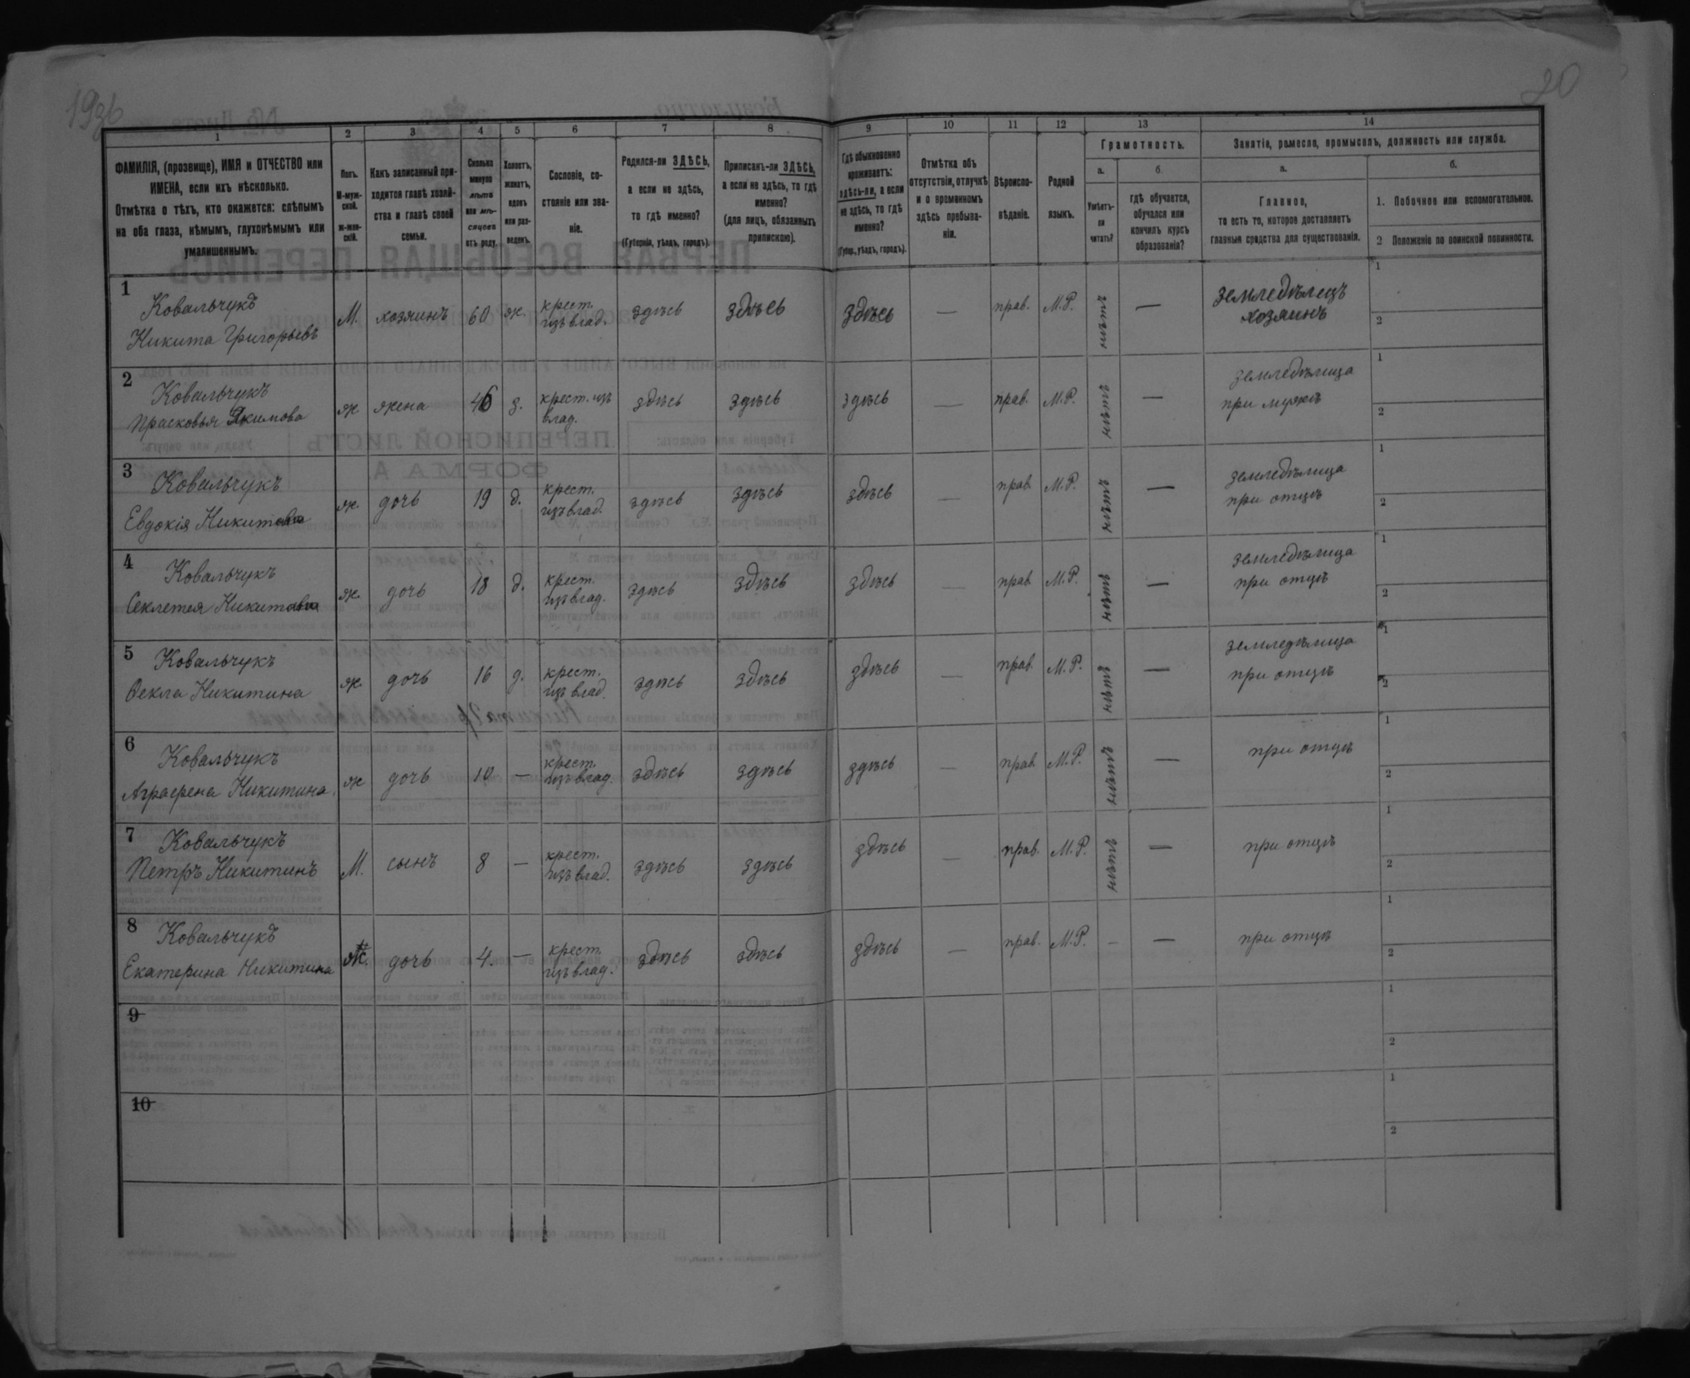 193б
20
1
2
3
4
5
6
7
8
9
10
11
12
13
14
ФАМИЛІЯ, (прозвище), ИМЯ и ОТЧЕСТВО или
ИМЕНА, если ихъ нѣсколько.
Отмѣтка о тѣхъ, кто окажется: слѣпымъ
на оба глаза, нѣмымъ, глухонѣмымъ или
умалишеннымъ.
Полъ.
М-муж-
ской.
ж-жен-
скій.
Какъ записанный при-
ходится главѣ хозяй-
ства и главѣ своей
семьи.
Сколько
минуло
лѣтъ
или мѣ-
сяцевъ
отъ роду.
Холостъ,
женатъ,
вдовъ
или раз-
веденъ.
Сословіе, со-
стояніе или зва-
ніе.
Родился-ли ЗДѢСЬ,
а если не здѣсь,
то гдѣ именно?
(Губернія, уѣздъ, городъ).
Приписанъ-ли ЗДѢСЬ,
а если не здѣсь, то гдѣ
именно?
(для лицъ, обязанныхъ
припискою).
Гдѣ обыкновенно
проживаетъ:
здѣсь-ли, а если
не здѣсь, то гдѣ
именно?
(Губер., уѣздъ, городъ).
Отмѣтка объ
отсутствіи, отлучкѣ
и о временномъ
здѣсь пребыва-
ніи.
Вѣроиспо-
вѣданіе.
Родной
языкъ.
Грамотность.
а.
Умѣетъ-
ли
читать?
б.
гдѣ обучается,
обучался или
кончилъ курсъ
образованія?
Занятія, ремесло, промыселъ, должность или служба.
а.
Главное,
то есть то, которое доставляетъ
главныя средства для существованія.
б.
1. Побочное или вспомогательное.
2 Положеніе по воинской повинности.
1
Ковальчукъ
Никита Григорьевъ
М.
хозяинъ
60
ж.
крест.
изъ влад.
здѣсь
здѣсь
здѣсь
—
прав.
М.Р.
нѣтъ
—
земледѣлецъ
хозяинъ
1
2
2
Ковальчукъ
Прасковья Якимова
ж.
жена
46
з.
крест. изъ
влад.
здѣсь
здѣсь
здѣсь
—
прав.
М.Р.
нѣтъ
—
земледѣлица
при мужѣ
1
2
3
Ковальчукъ
Евдокія Никитина
ж.
дочь
19
д.
крест.
изъ влад.
здѣсь
здѣсь
здѣсь
—
прав.
М.Р.
нѣтъ
—
земледѣлица
при отцѣ
1
2
4
Ковальчукъ
Секлетея Никитина
ж.
дочь
18
д.
крест.
изъ влад.
здѣсь
здѣсь
здѣсь
—
прав.
М.Р.
нѣтъ
—
земледѣлица
при отцѣ
1
2
5
Ковальчукъ
Фекла Никитина
ж.
дочь
16
д.
крест.
изъ влад.
здѣсь
здѣсь
здѣсь
—
прав.
М.Р.
нѣтъ
—
земледѣлица
при отцѣ
1
2
6
Ковальчукъ
Аграфена Никитина
ж
дочь
10
—
крест.
изъ влад.
здѣсь
здѣсь
здѣсь
—
прав.
М.Р.
нѣтъ
—
при отцѣ
1
2
7
Ковальчукъ
Петръ Никитинъ
М.
сынъ
8
—
крест.
изъ влад.
здѣсь
здѣсь
здѣсь
—
прав.
М.Р.
нѣтъ
—
при отцѣ
1
2
8
Ковальчукъ
Екатерина Никитина
ж.
дочь
4.
—
крест.
изъ влад.
здѣсь
здѣсь
здѣсь
—
прав.
М.Р.
–
—
при отцѣ
1
2
9
1
2
10
1
2